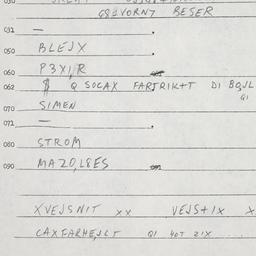 G8JVORN7 BESER
031 — .
050 BLEJX .
060 P3X1,R
062 Q SOCAX FARTRIKTT DI BQJL
QI
070 SIMEN
071 — .
080 STROM
090 MAZO,L8ES
XVEJSNIT XX VEJS+IX X
CAXFARHE,SLT QI 40T 21X ....